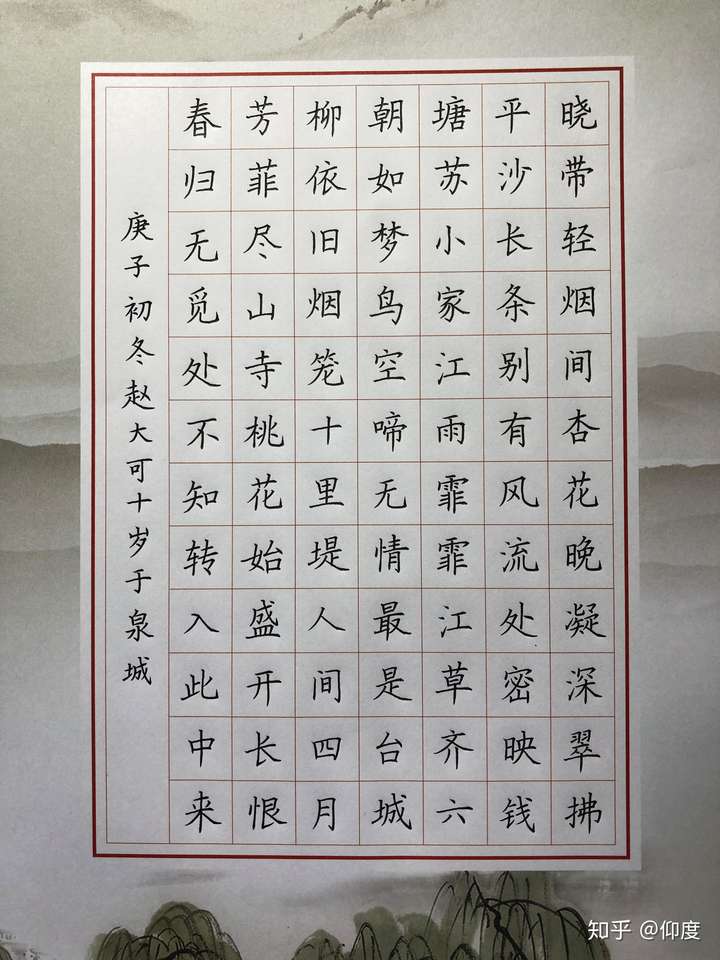 晓带轻烟间杏花晚凝深翠拂
平沙长条别有风流处密映钱
塘苏小家江雨霏霏江草齐六
朝如梦鸟空啼无情最是台城
柳依旧烟笼十里堤人间四月
芳菲尽山寺桃花始盛开长恨
春归无觅处不知转入此中来
庚子初冬赵大可十岁于泉城
知乎 @仰度